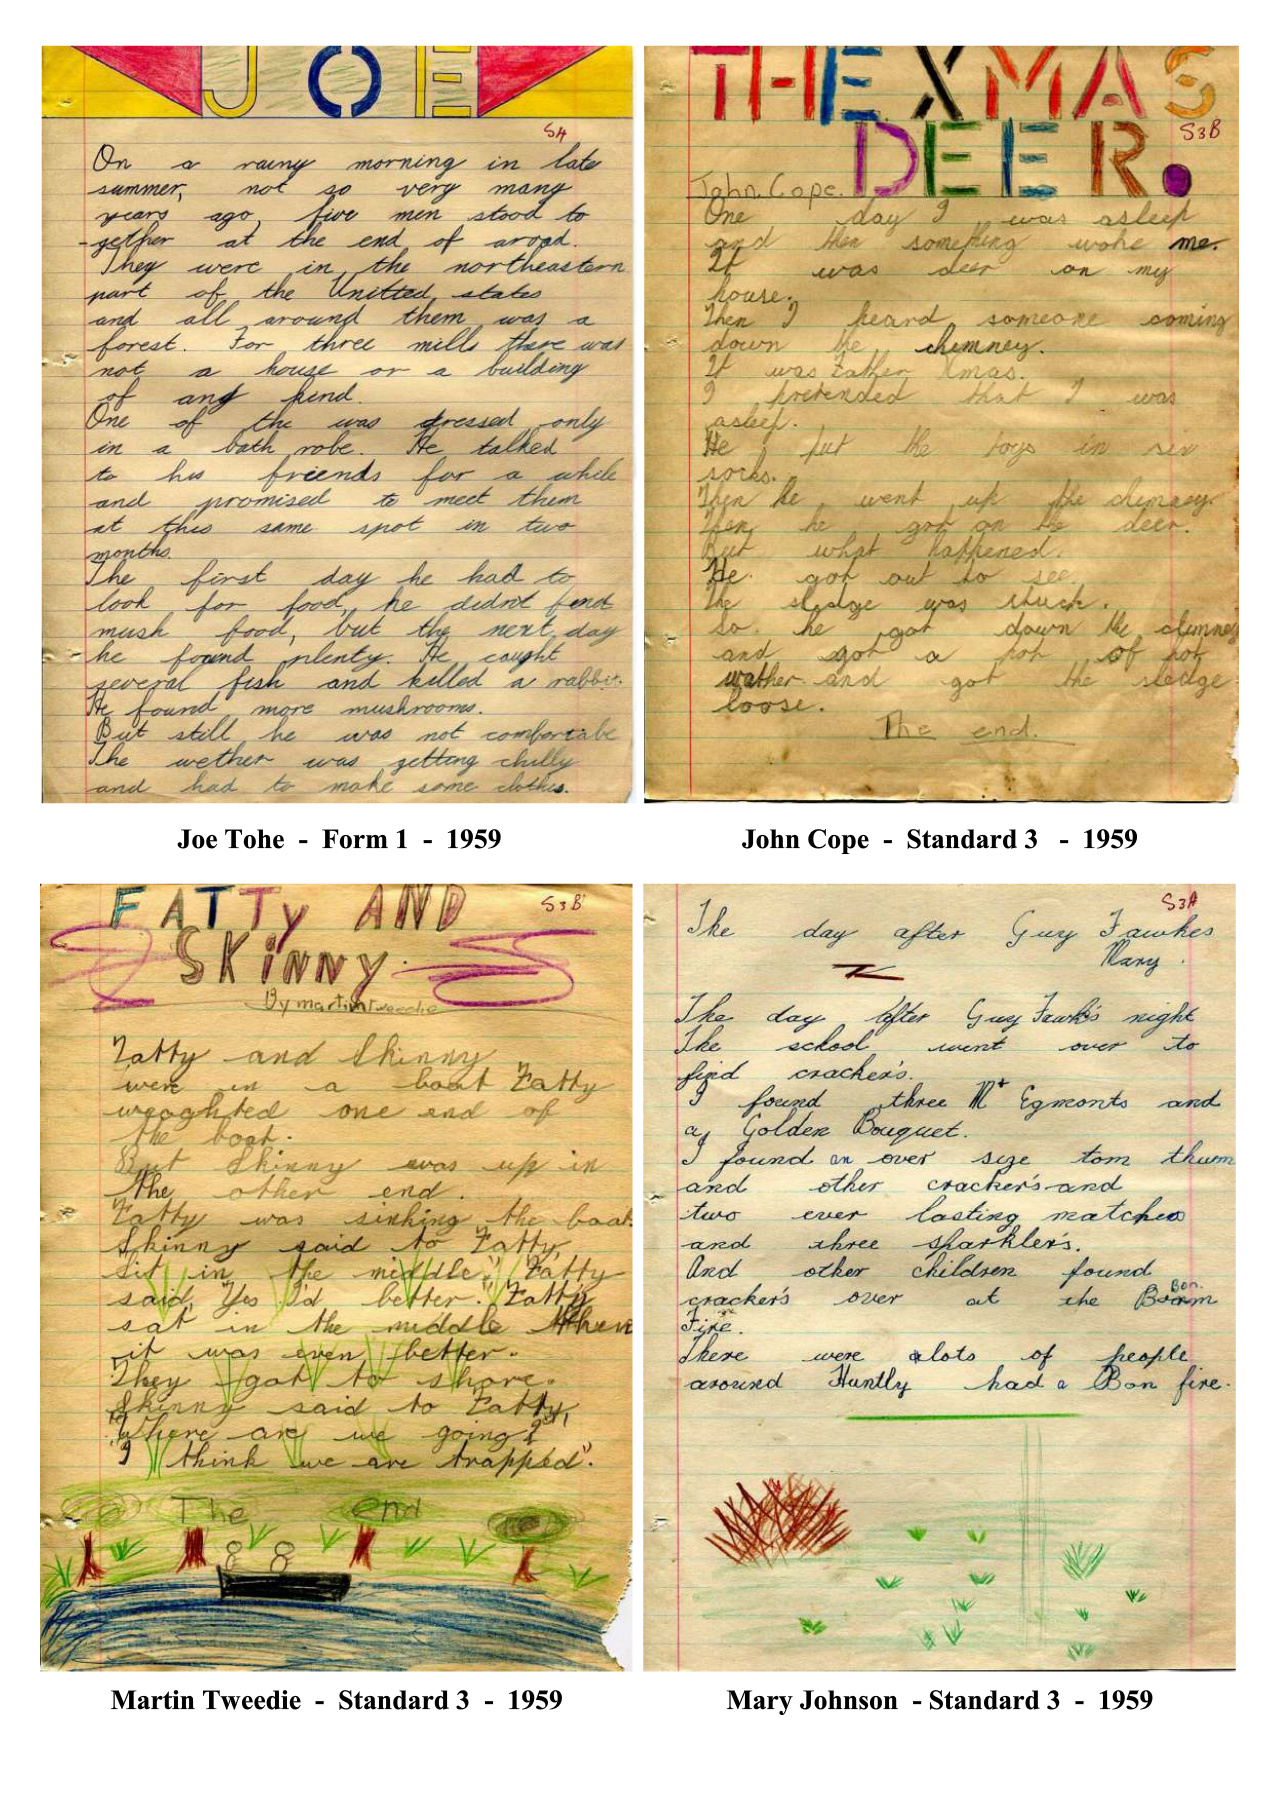 JOE
S4
On a rainy morning in late
summer, not so very many
years ago, five men stood to
-gether at the end of aroad.
They were in the northeastern
part of the Unitted states
and all around them was a
forest. For three mills there was
not a house or a building
of any kind.
One of the was dressed only
in a bath robe. He talked
to his friends for a while
and promised to meet them
at this same spot in two
months.
The first day he had to
look for food, he didn't find
mush food, but the next day
he found plenty. He caught
several fish and killed a rabbit.
He found more mushrooms.
But still he was not comfortabe
The wether was getting chilly
and had to make some clothes.
Joe Tohe - Form 1 - 1959
THE XMAS
DEER.
S3B
John. Cope.
One day I was asleep
and then something woke me.
It was deer on my
house.
Then I heard someone coming
down the chimney.
It was Father Xmas.
I pretended that I was
asleep.
He put the toys in six
socks.
Then he went up the chimney.
Then he got on the deer.
But what happened.
He got out to see.
The sledge was stuck.
so he got down the chimney
and got a pot of hot
wather and got the sledge
loose.
The end.
John Cope - Standard 3 - 1959
FATTy AND
SKinny.
S3B
By martin tweedie
Fatty and Skinny
were in a boat Fatty
weaghted one end of
the boat.
But Skinny was up in
the other end.
Fatty was sinking the boat
Skinny said to Fatty,
sit in the middle," Fatty
said, "Yes I'd better." Fatty
sat in the middle then
it was even better.
They got to shore.
Skinny said to Fatty,
"Where are we going?"
"I think we are trapped".
The end
Martin Tweedie - Standard 3 - 1959
S3A
The day after Guy Fawkes
Mary.
The day after Guy Fawk's night
The school went over to
find cracker's.
I found three Mt Egmonts and
a Golden Bouquet.
I found an over size tom thum
and other cracker's and
two ever lasting matches
and three sparkler's.
And other children found
cracker's over at the Bon
Fire.
There were alots of people
around Huntly had a Bon fire.
Mary Johnson - Standard 3 - 1959